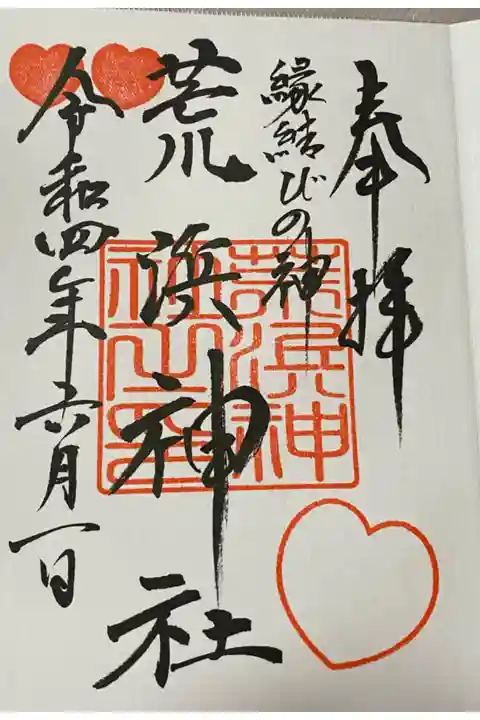 奉拝
縁結びの神
荒浜神社
荒浜神社之印
令和四年六月一日